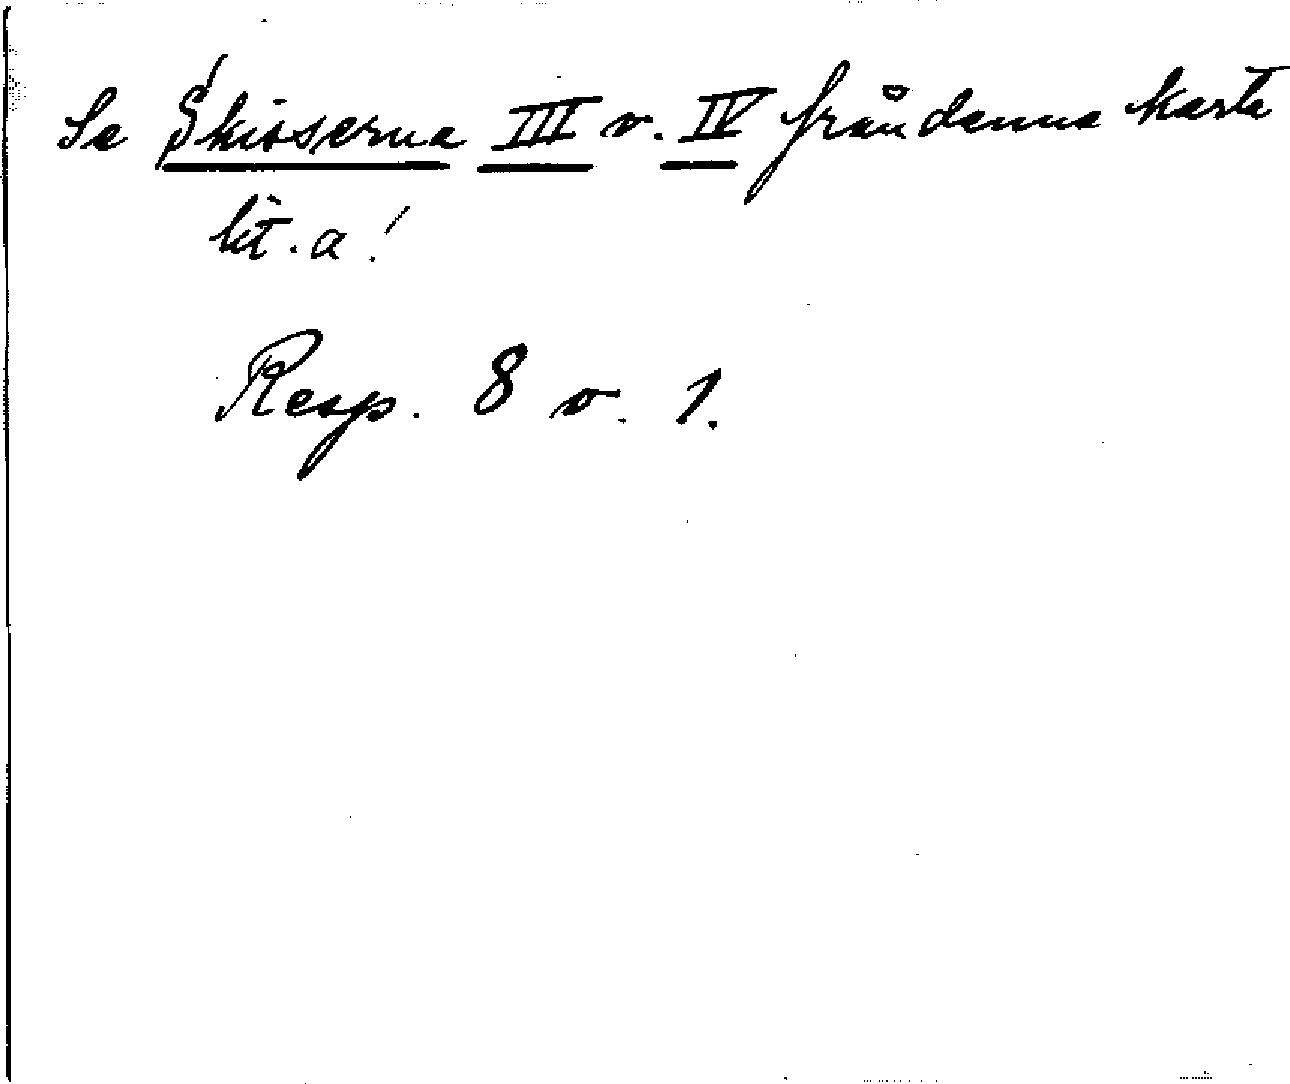 Se Skisserna III o. IV från denna karta
lit. a!
Resp. 8 o. 1.